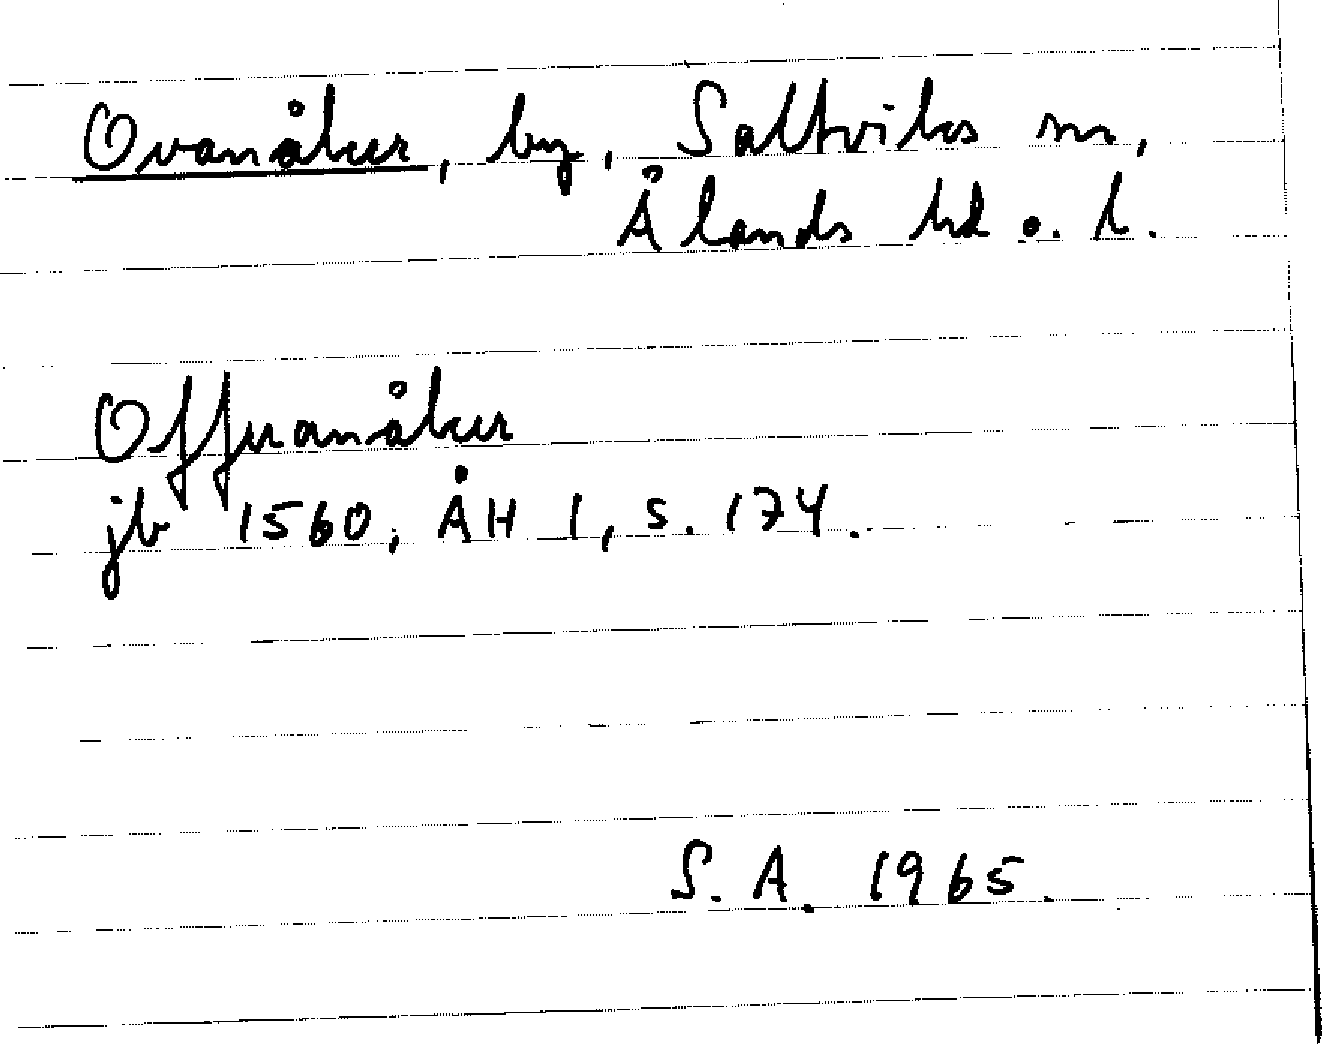 Ovanåker, by, Saltviks sn,
Ålands hd o. l.
Offuanåker
jb 1560, ÅH 1, s. 174.
S. A. 1965.